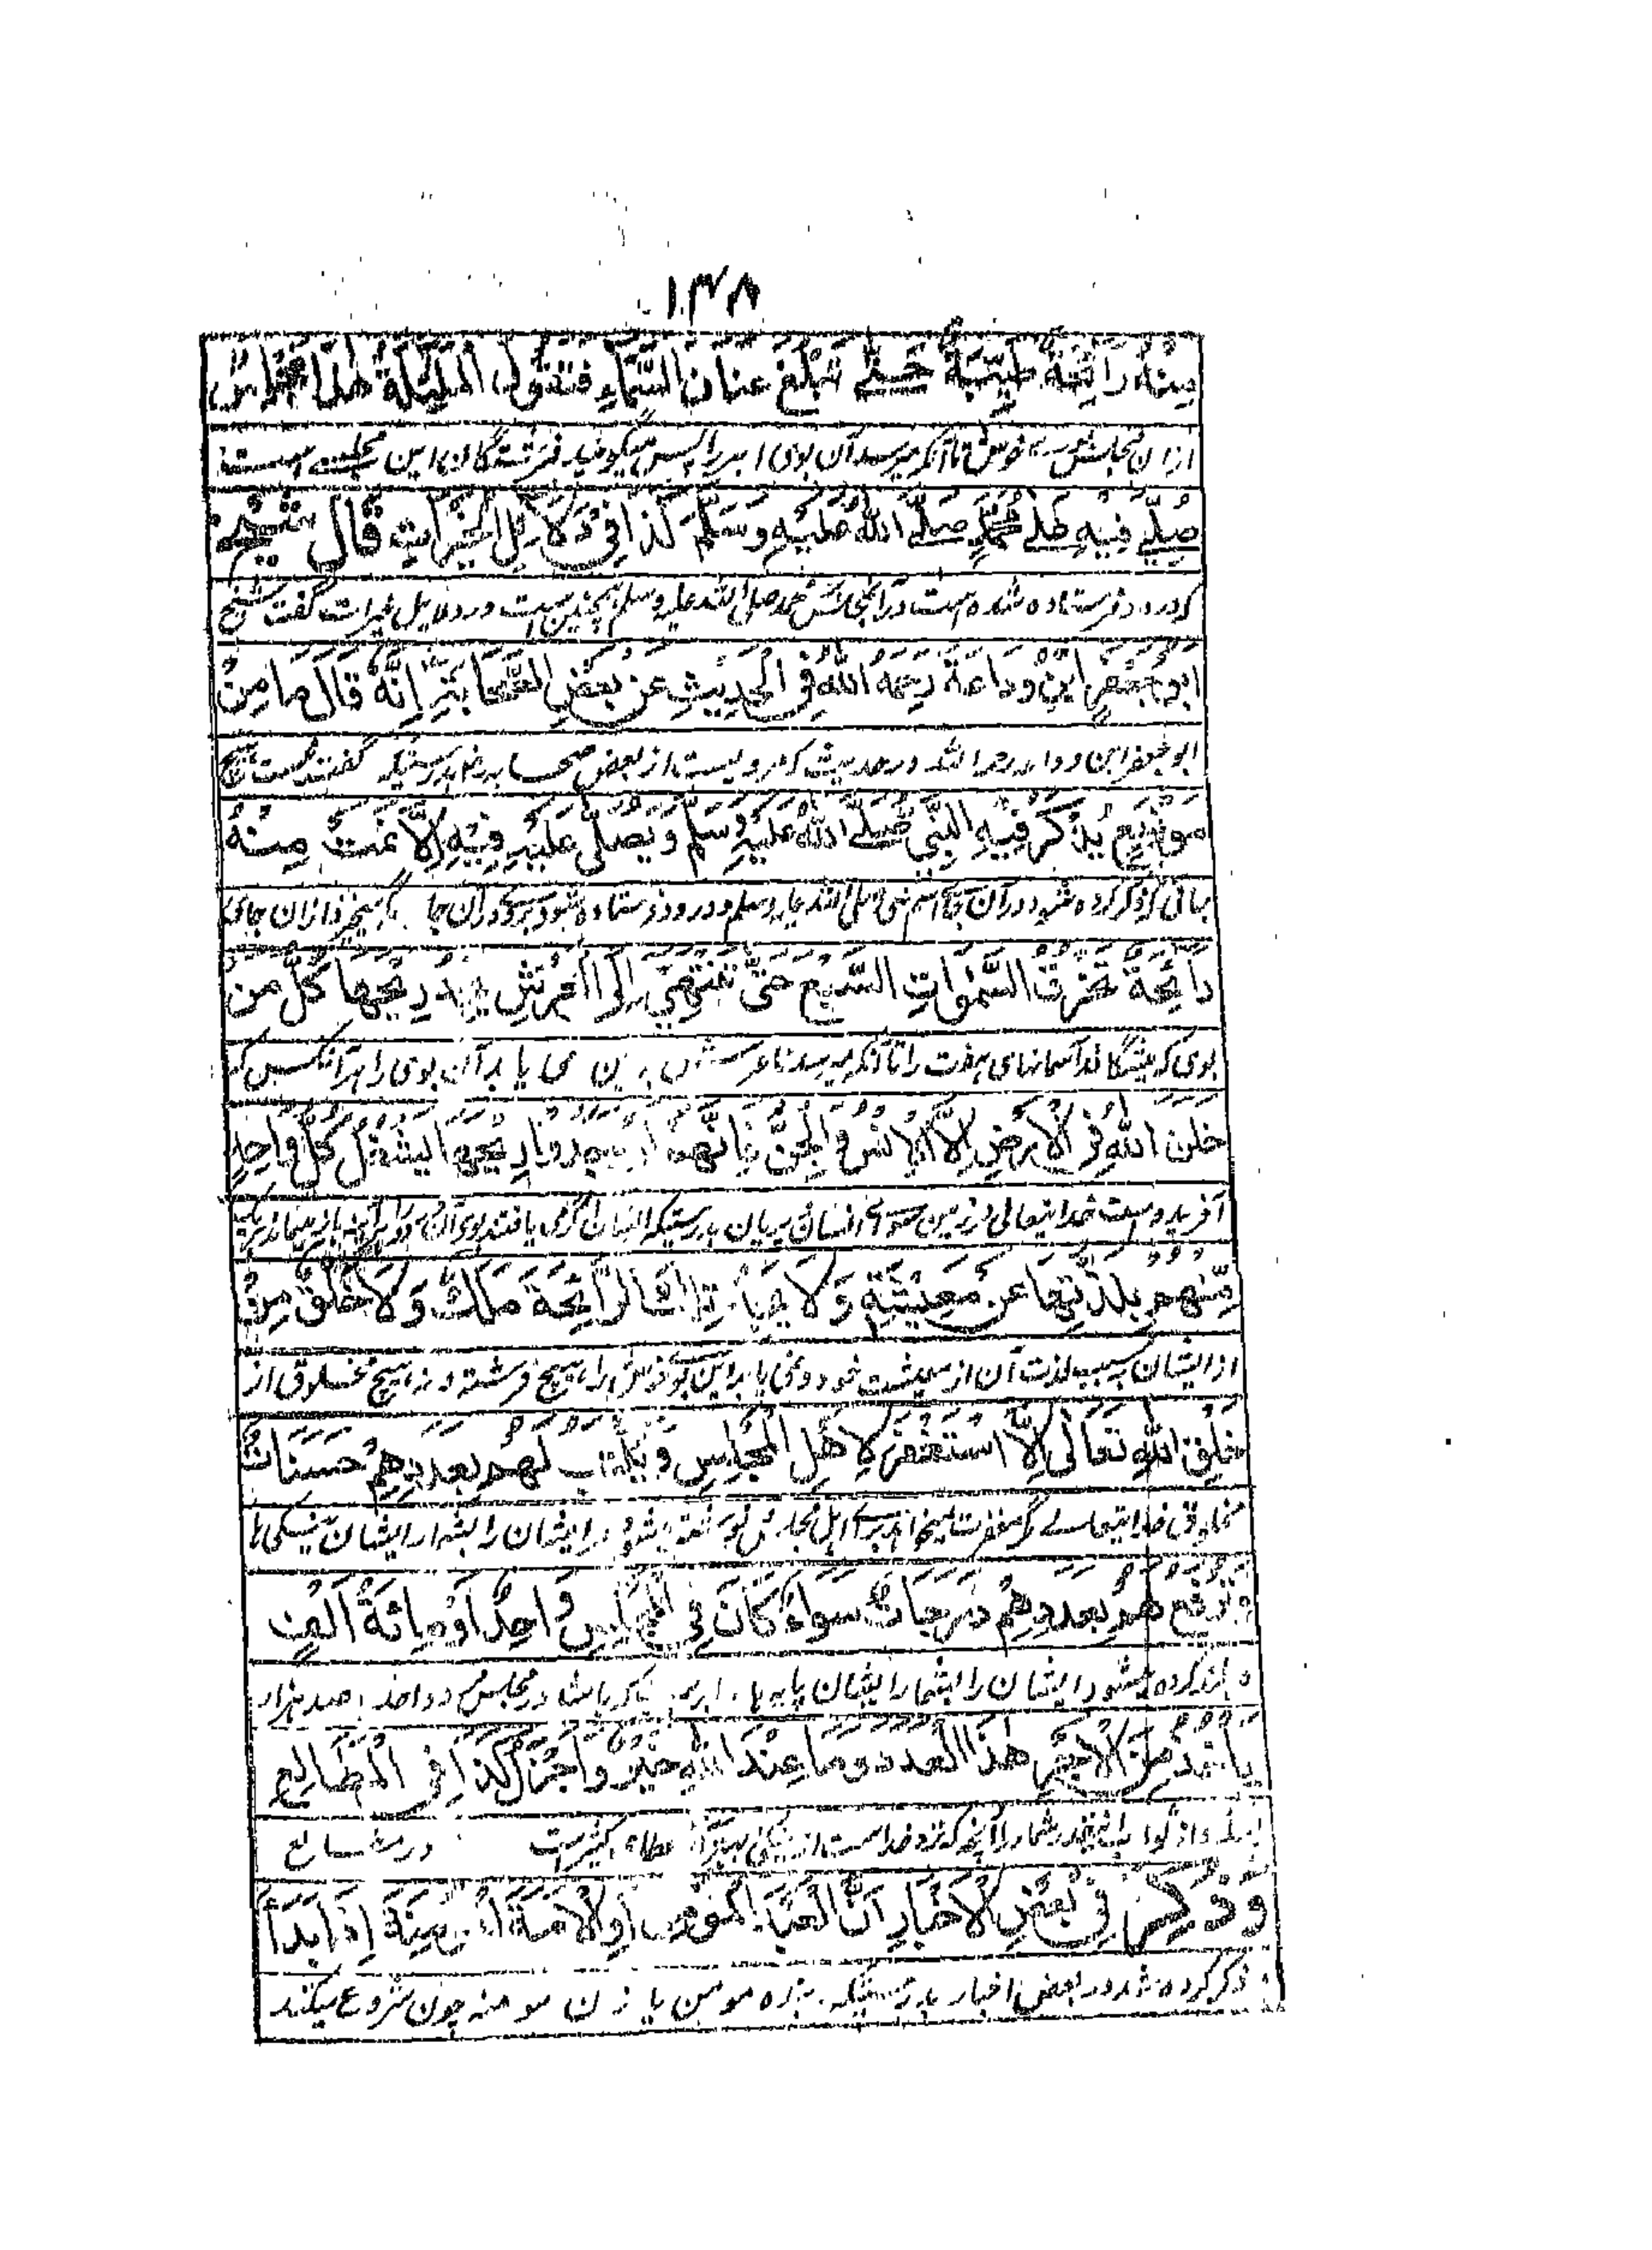 ۱۳۸
مِنْهُ رَائِحَةٌ طَيِّبَةٌ حَتّٰى تَبْلُغَ عَنَانَ السَّمَاءِ فَتَقُولُ الْمَلٰئِكَةُ هٰذَا مَجْلِسٌ
ازان مجلس بوے خوش تا آنکه میرسد آن بوی ابر را پس میگویند فرشتگان این مجلسے است
صُلِّيَ فِيْهِ عَلٰى مُحَمَّدٍ صَلَّى اللهُ عَلَيْهِ وَسَلَّمَ كَذَا فِيْ دَلَائِلِ الْخَيْرَاتِ قَالَ شَيْخُ
که درود فرستاده شده است در آن مجلس محمد صلی الله علیه وسلم همچنین است در دلایل خیرات گفت شیخ
ابو جَعْفَرٍ ابْنُ وَدَاعَةَ رَحِمَهُ اللهُ فِى الْحَدِيْثِ عَنْ بَعْضِ الصَّحَابَةِ اِنَّهُ قَالَ مَا مِنْ
ابو جعفر ابن وداعه رحمه الله در حدیث که مرویست از بعض صحابه بدرستیکه گفت نیست هیچ
مَوْضِعٍ يُذْكَرُ فِيْهِ النَّبِيُّ صَلَّى اللهُ عَلَيْهِ وَسَلَّمَ وَيُصَلّٰى عَلَيْهِ فِيْهِ اِلَّا نَمَتْ مِنْهُ
جائی که ذکر کرده شود در آن جا اسم نبی صلی الله علیه وسلم و درود فرستاده شود برو در آن جا مگر میخیزد ازان جای
رَائِحَةٌ تَخْرُقُ السَّمٰوَاتِ السَّبْعَ حَتّٰى تَنْتَهِيَ اِلَى الْعَرْشِ يَجِدُ رِيْحَهَا كُلُّ مَنْ
بوی که میشگافد آسمانهای هفت را تا آنکه میرسد تا عرش می یابد آن بوی را هر آنکس که
خَلَقَ اللهُ فِي الْاَرْضِ اِلَّا الْاِنْسُ وَالْجِنُّ فَاِنَّهُمْ لَوْ وَجَدُوْا رِيْحَهَا لَيَشْتَغِلُ كُلُّ وَاحِدٍ
آفریده است خدایتعالی در زمین سوای انسان و پریان بدرستیکه ایشان اگر می یافتند بوی آن
مِّنْهُمْ بِلَذَّتِهَا عَنْ مَعِيْشَتِهِ وَلَا يَجِدُ تِلْكَ الرَّائِحَةَ مَلَكٌ وَلَا خَلْقٌ مِنْ
از ایشان بسبب لذت آن از معیشت خود و نمی یابد این بوی خوش را هیچ فرشته و نه هیچ مخلوق از
خَلْقِ اللهِ تَعَالٰى اِلَّا اسْتَغْفَرَ لِاَهْلِ الْمَجْلِسِ وَيُكْتَبُ لَهُمْ بِعَدَدِهِمْ حَسَنَاتٌ
مخلوق خدایتعالے مگر مغفرت میخواهد براے اهل مجلس نوشته میشود ایشان را بشمار ایشان نیکی ها
وَيُرْفَعُ لَهُمْ بِعَدَدِهِمْ دَرَجَاتٌ سَوَاءٌ كَانَ فِي الْمَجْلِسِ وَاحِدٌ اَوْ مِائَةُ اَلْفٍ
و بلند کرده میشود ایشان را بشمار ایشان پایه ها برابر باشد در مجلس واحد یا صد هزار
يَاْخُذُ مِنَ الْاَجْرِ هٰذَا الْعَدَدَ وَمَا عِنْدَ اللهِ خَيْرٌ وَاَجْزَلُ كَذَا فِي الْمَطَالِعِ
وَذُكِرَ فِيْ بَعْضِ الْاَخْبَارِ اَنَّ الْعَبْدَ الْمُؤْمِنَ اَوِ الْاَمَةَ الْمُؤْمِنَةَ اِذَا بَدَأَ
ذکر کرده شد در بعض اخبار بدرستیکه بنده مومن یا زن مومنه چون شروع میکند